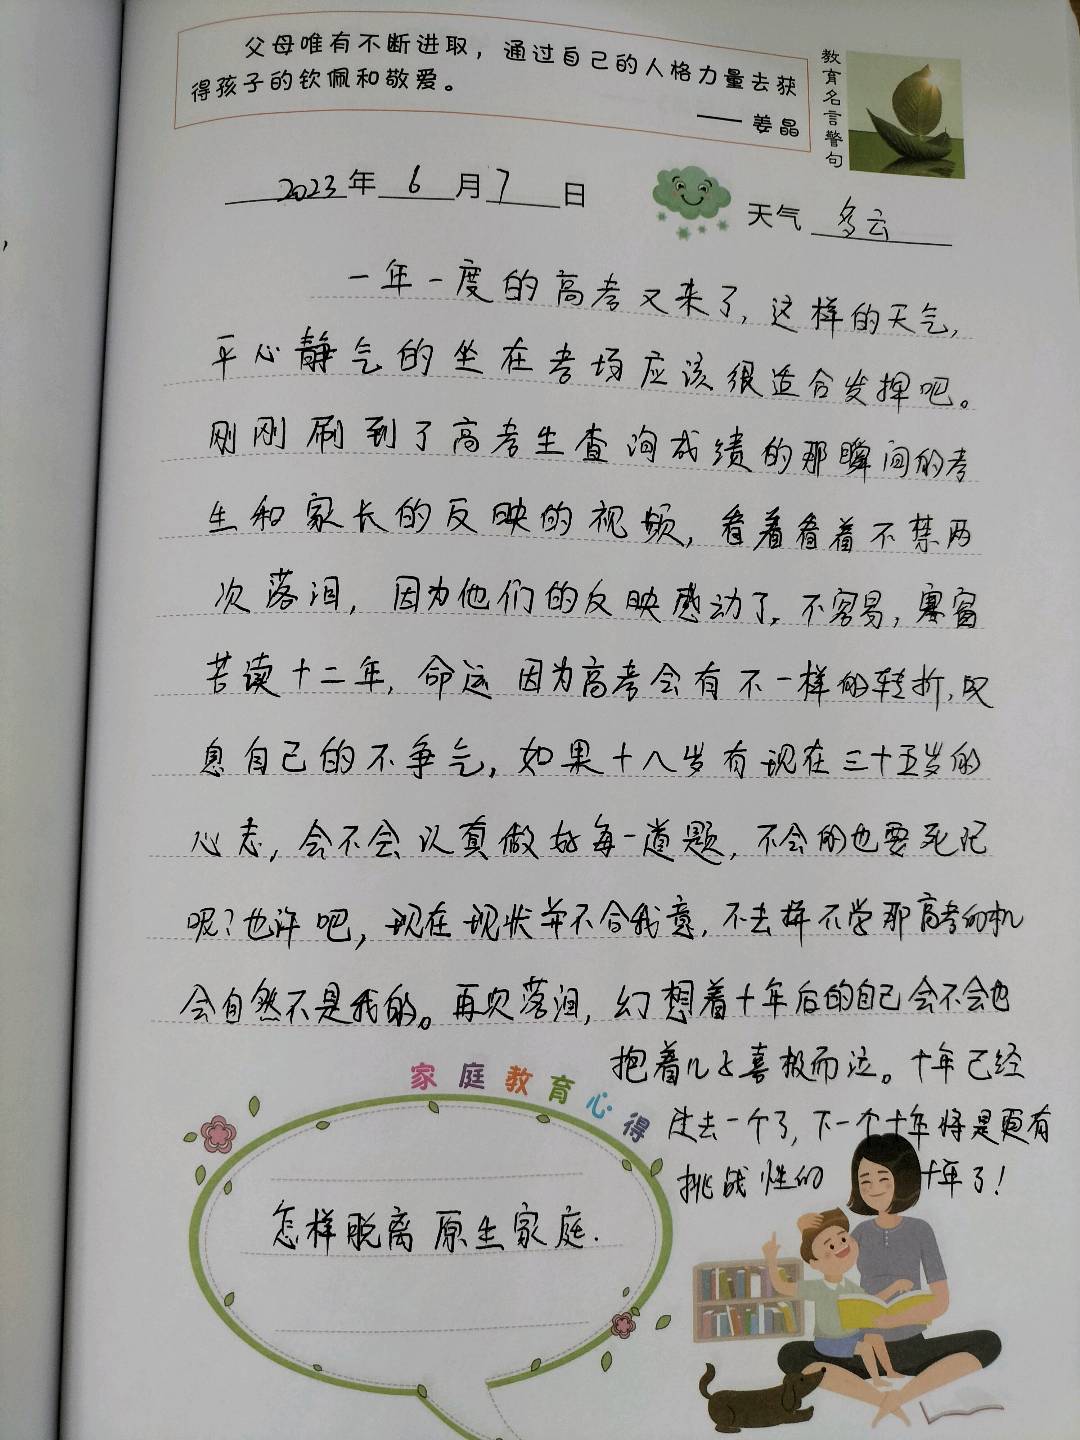 父母唯有不断进取，通过自己的人格力量去获
得孩子的钦佩和敬爱。
—— 姜晶
教育名言警句
2023年 6 月 7 日
天气 多云
一年一度的高考又来了，这样的天气，
平心静气的坐在考场应该很适合发挥吧。
刚刚刷到了高考生查询成绩的那瞬间的考
生和家长的反映的视频，看着看着不禁两
次落泪，因为他们的反映感动了。不容易，寒窗
苦读十二年，命运因为高考会有不一样的转折，叹
息自己的不争气，如果十八岁有现在三十五岁的
心志，会不会认真做好每一道题，不会的也要死记
呢？也许吧，现在现状并不合我意，不去拼不学那高考的机
会自然不是我的。再次落泪，幻想着十年后的自己会不会也
抱着儿子喜极而泣。十年已经
过去一个了，下一个十年将是更有
挑战性的 十年了！
家庭教育心得
怎样脱离原生家庭.